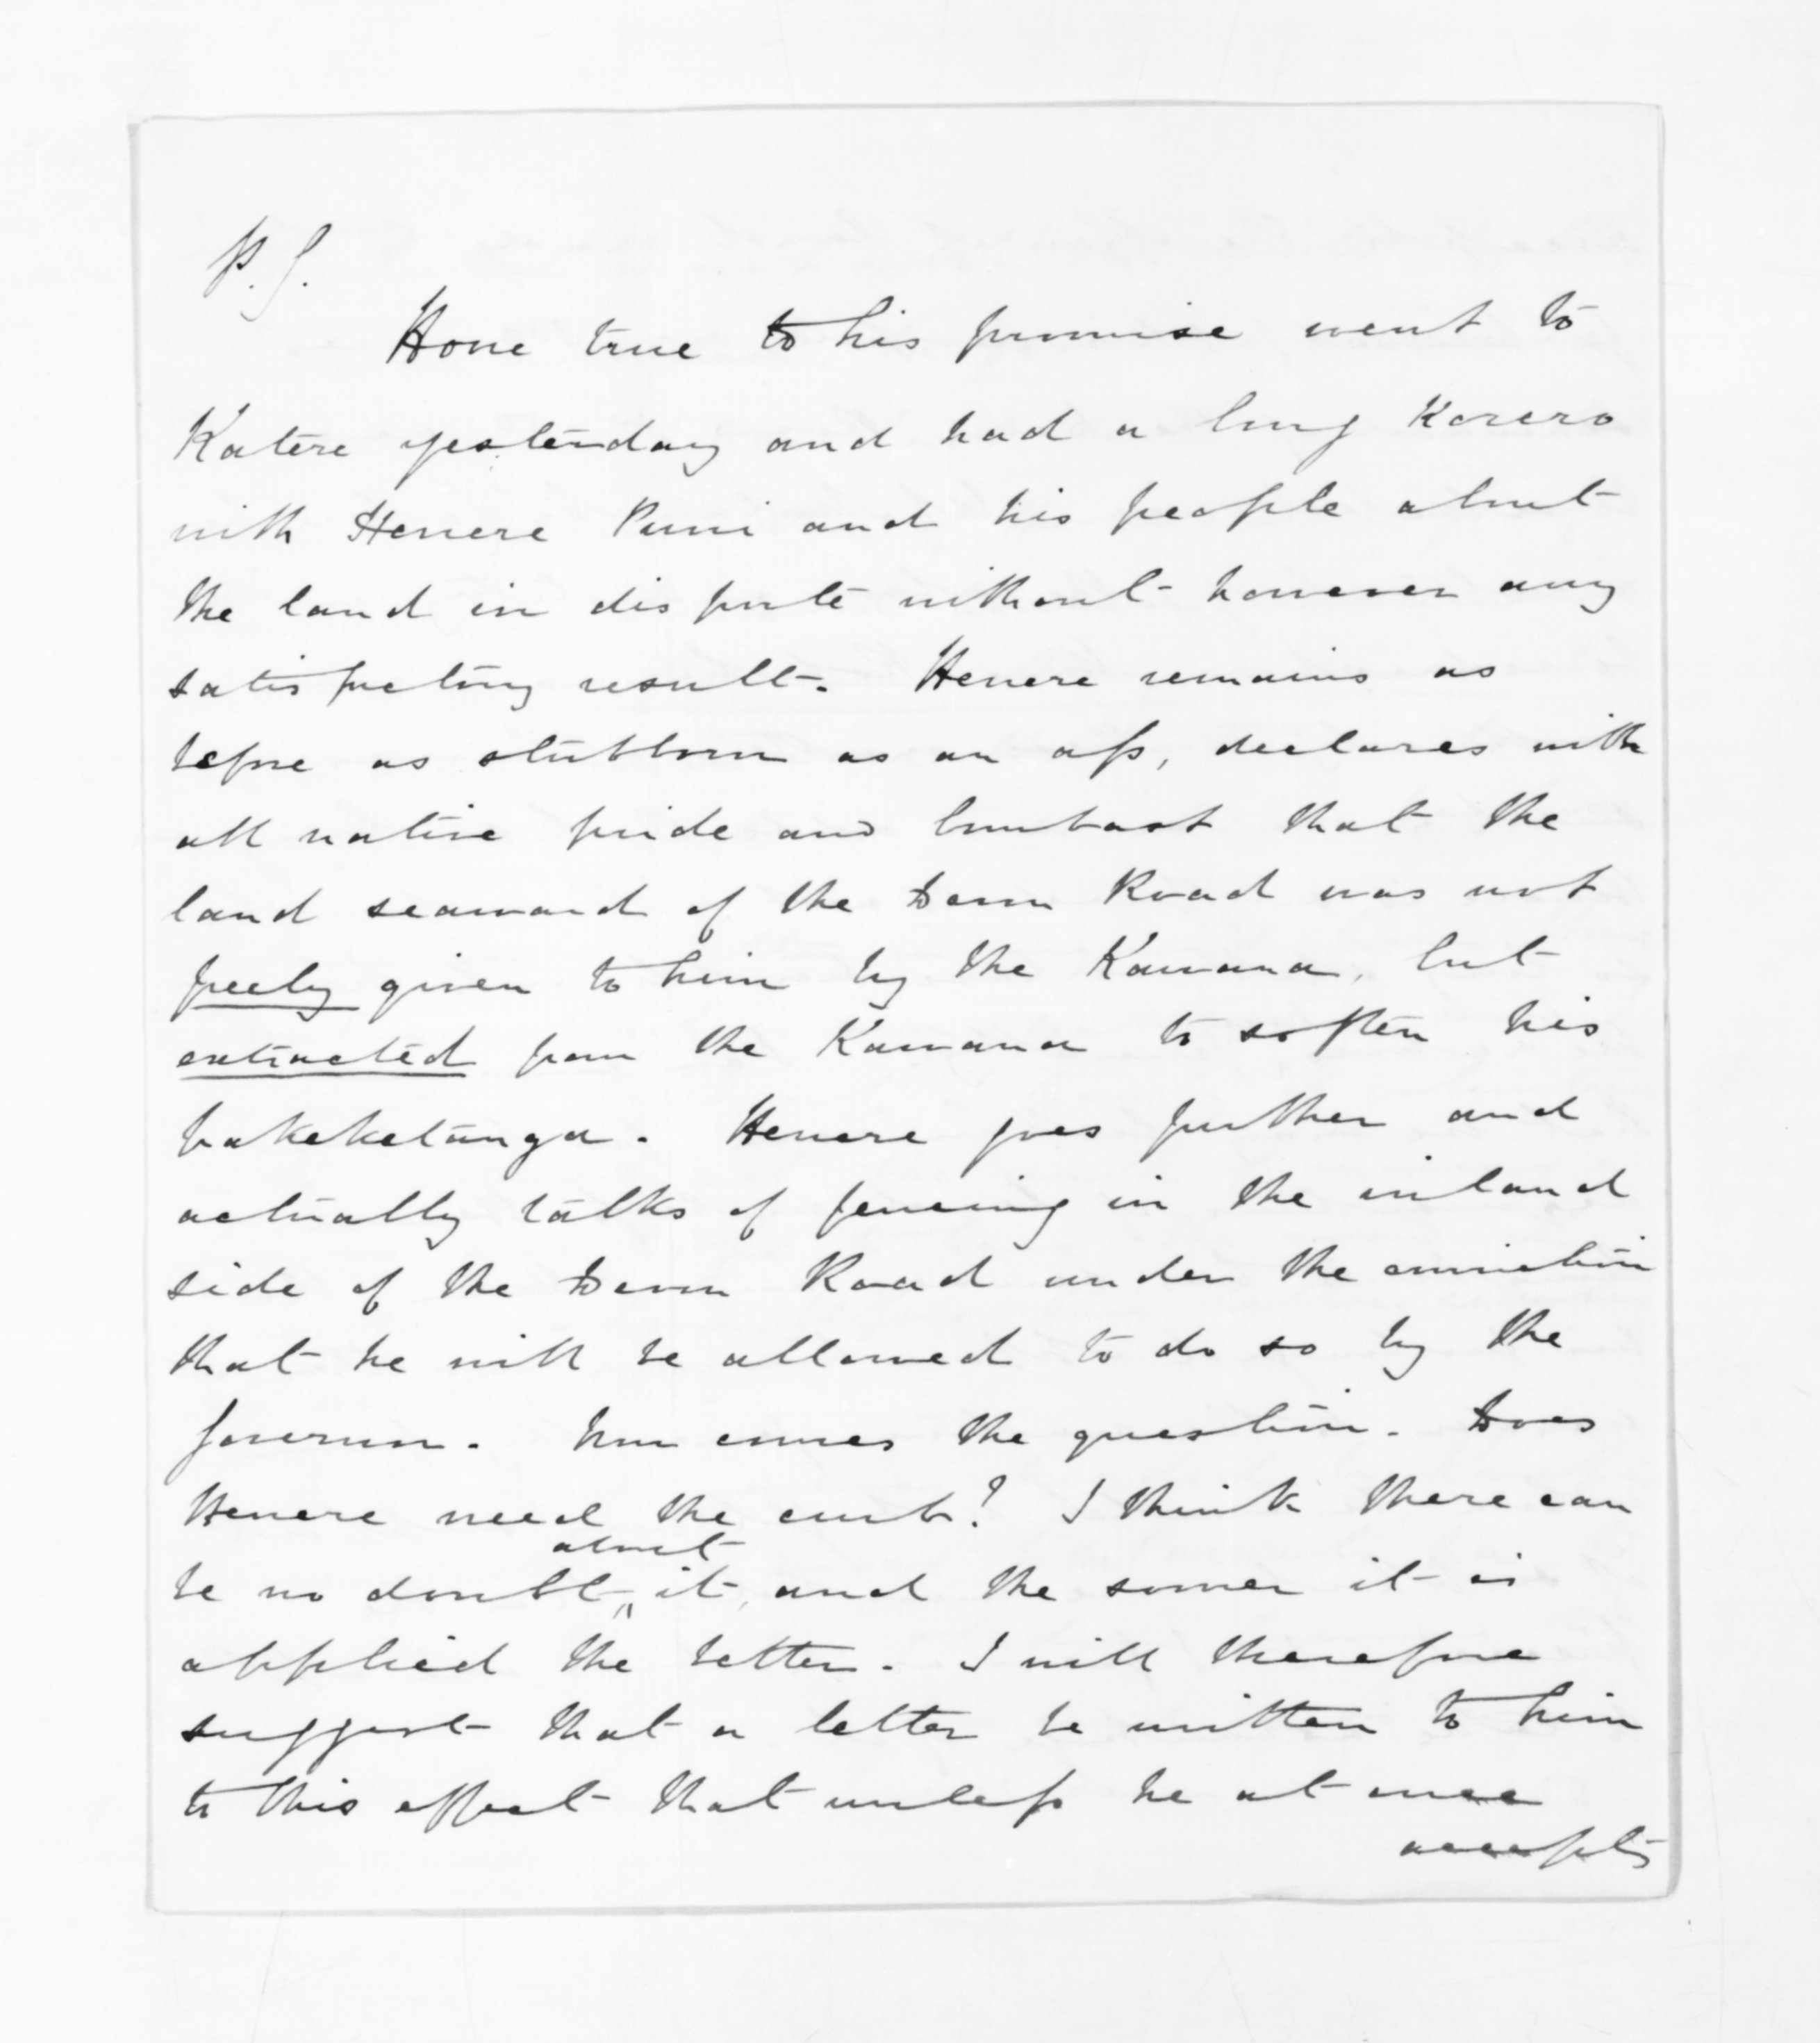 P.S.
Hone true to his promise went to
Katere yesterday and had a long Korero
with Henere Puni and his people about
the land in dispute without however any
satisfactory result. Henere remains as
before as stubborn as an ass, declares with
all native pride and bombast that the
land seaward of the Devon Road was not
freely given to him by the Kawana, but
extracted from the Kawana to soften his
pakeketanga. Henere goes further and
actually talks of fencing in the inland
side of the Devon Road under the conviction
that he will be allowed to do so by the
Govermn. Now comes the question. Does
Henere need the curb? I think there can
about
be no doubt it, and the sooner it is
applied the better. I will therefore
suggest that a letter be written to him
to this effect that unless he at once
accepts